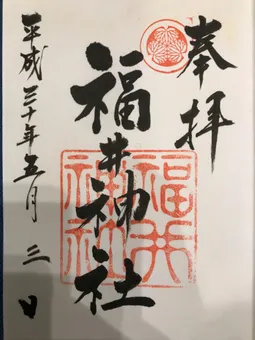 奉拝
福井神社
福井神社
平成三十年五月三日